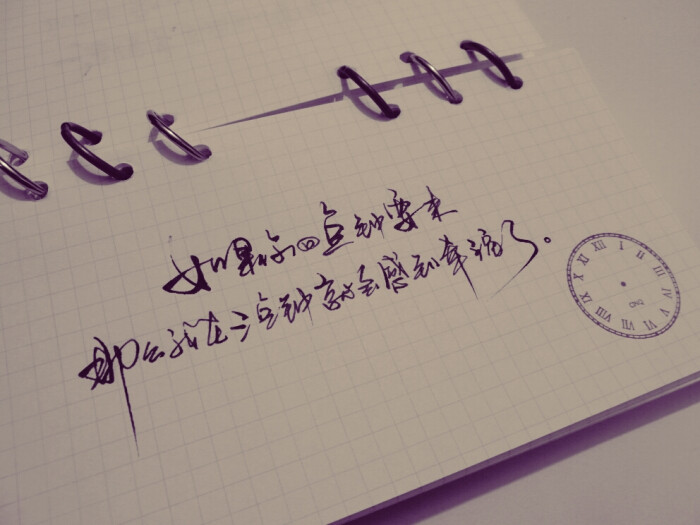 如果你四点钟要来
那么我在三点钟就会感到幸福了。
XII I II III IIII V VI VII VIII IX X XI